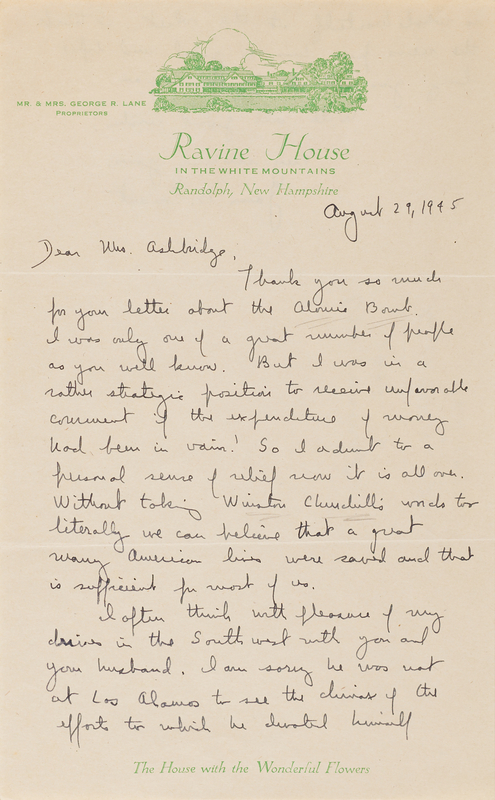 MR. & MRS. GEORGE R. LANE
PROPRIETORS
Ravine House
IN THE WHITE MOUNTAINS
Randolph, New Hampshire
August 29, 1945
Dear Mrs. Ashbridge,
Thank you so much
for your letter about the Atomic Bomb.
I was only one of a great number of people
as you well know. But I was in a
rather strategic position to receive unfavorable
comment if the expenditure of money
had been in vain! So I admit to a
personal sense of relief now it is all over.
Without taking Winston Churchill's words too
literally we can believe that a great
many American lives were saved and that
is sufficient for most of us.
I often think with pleasure of my
drives in the Southwest with you and
your husband. I am sorry he was not
at Los Alamos to see the climax of the
efforts to which he devoted himself
The House with the Wonderful Flowers